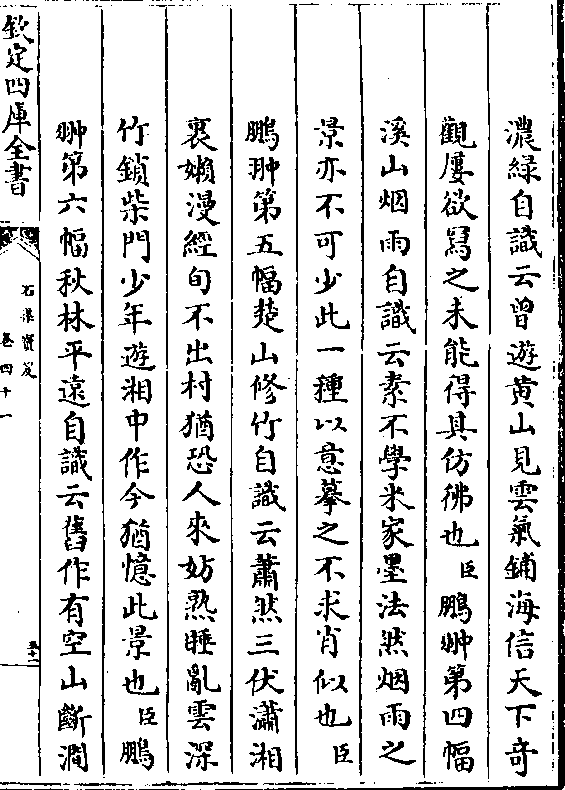 濃緑自識云曾遊黄山見雲氣鋪海信天下奇
觀屢欲冩之未能得具仿彿也臣鵬翀第四幅
溪山烟雨自識云素不學米家墨法然烟雨之
景亦不可少此一種以意摹之不求肖似也臣
鵬翀第五幅楚山修竹自識云蕭然三伏瀟湘
裏嬾漫經旬不出村猶恐人來妨熟睡亂雲深
竹鎖柴門少年遊湘中作今猶憶此景也臣鵬
翀第六幅秋林平遠自識云舊作有空山斷澗
欽定四庫全書
石渠寳笈
卷四十一